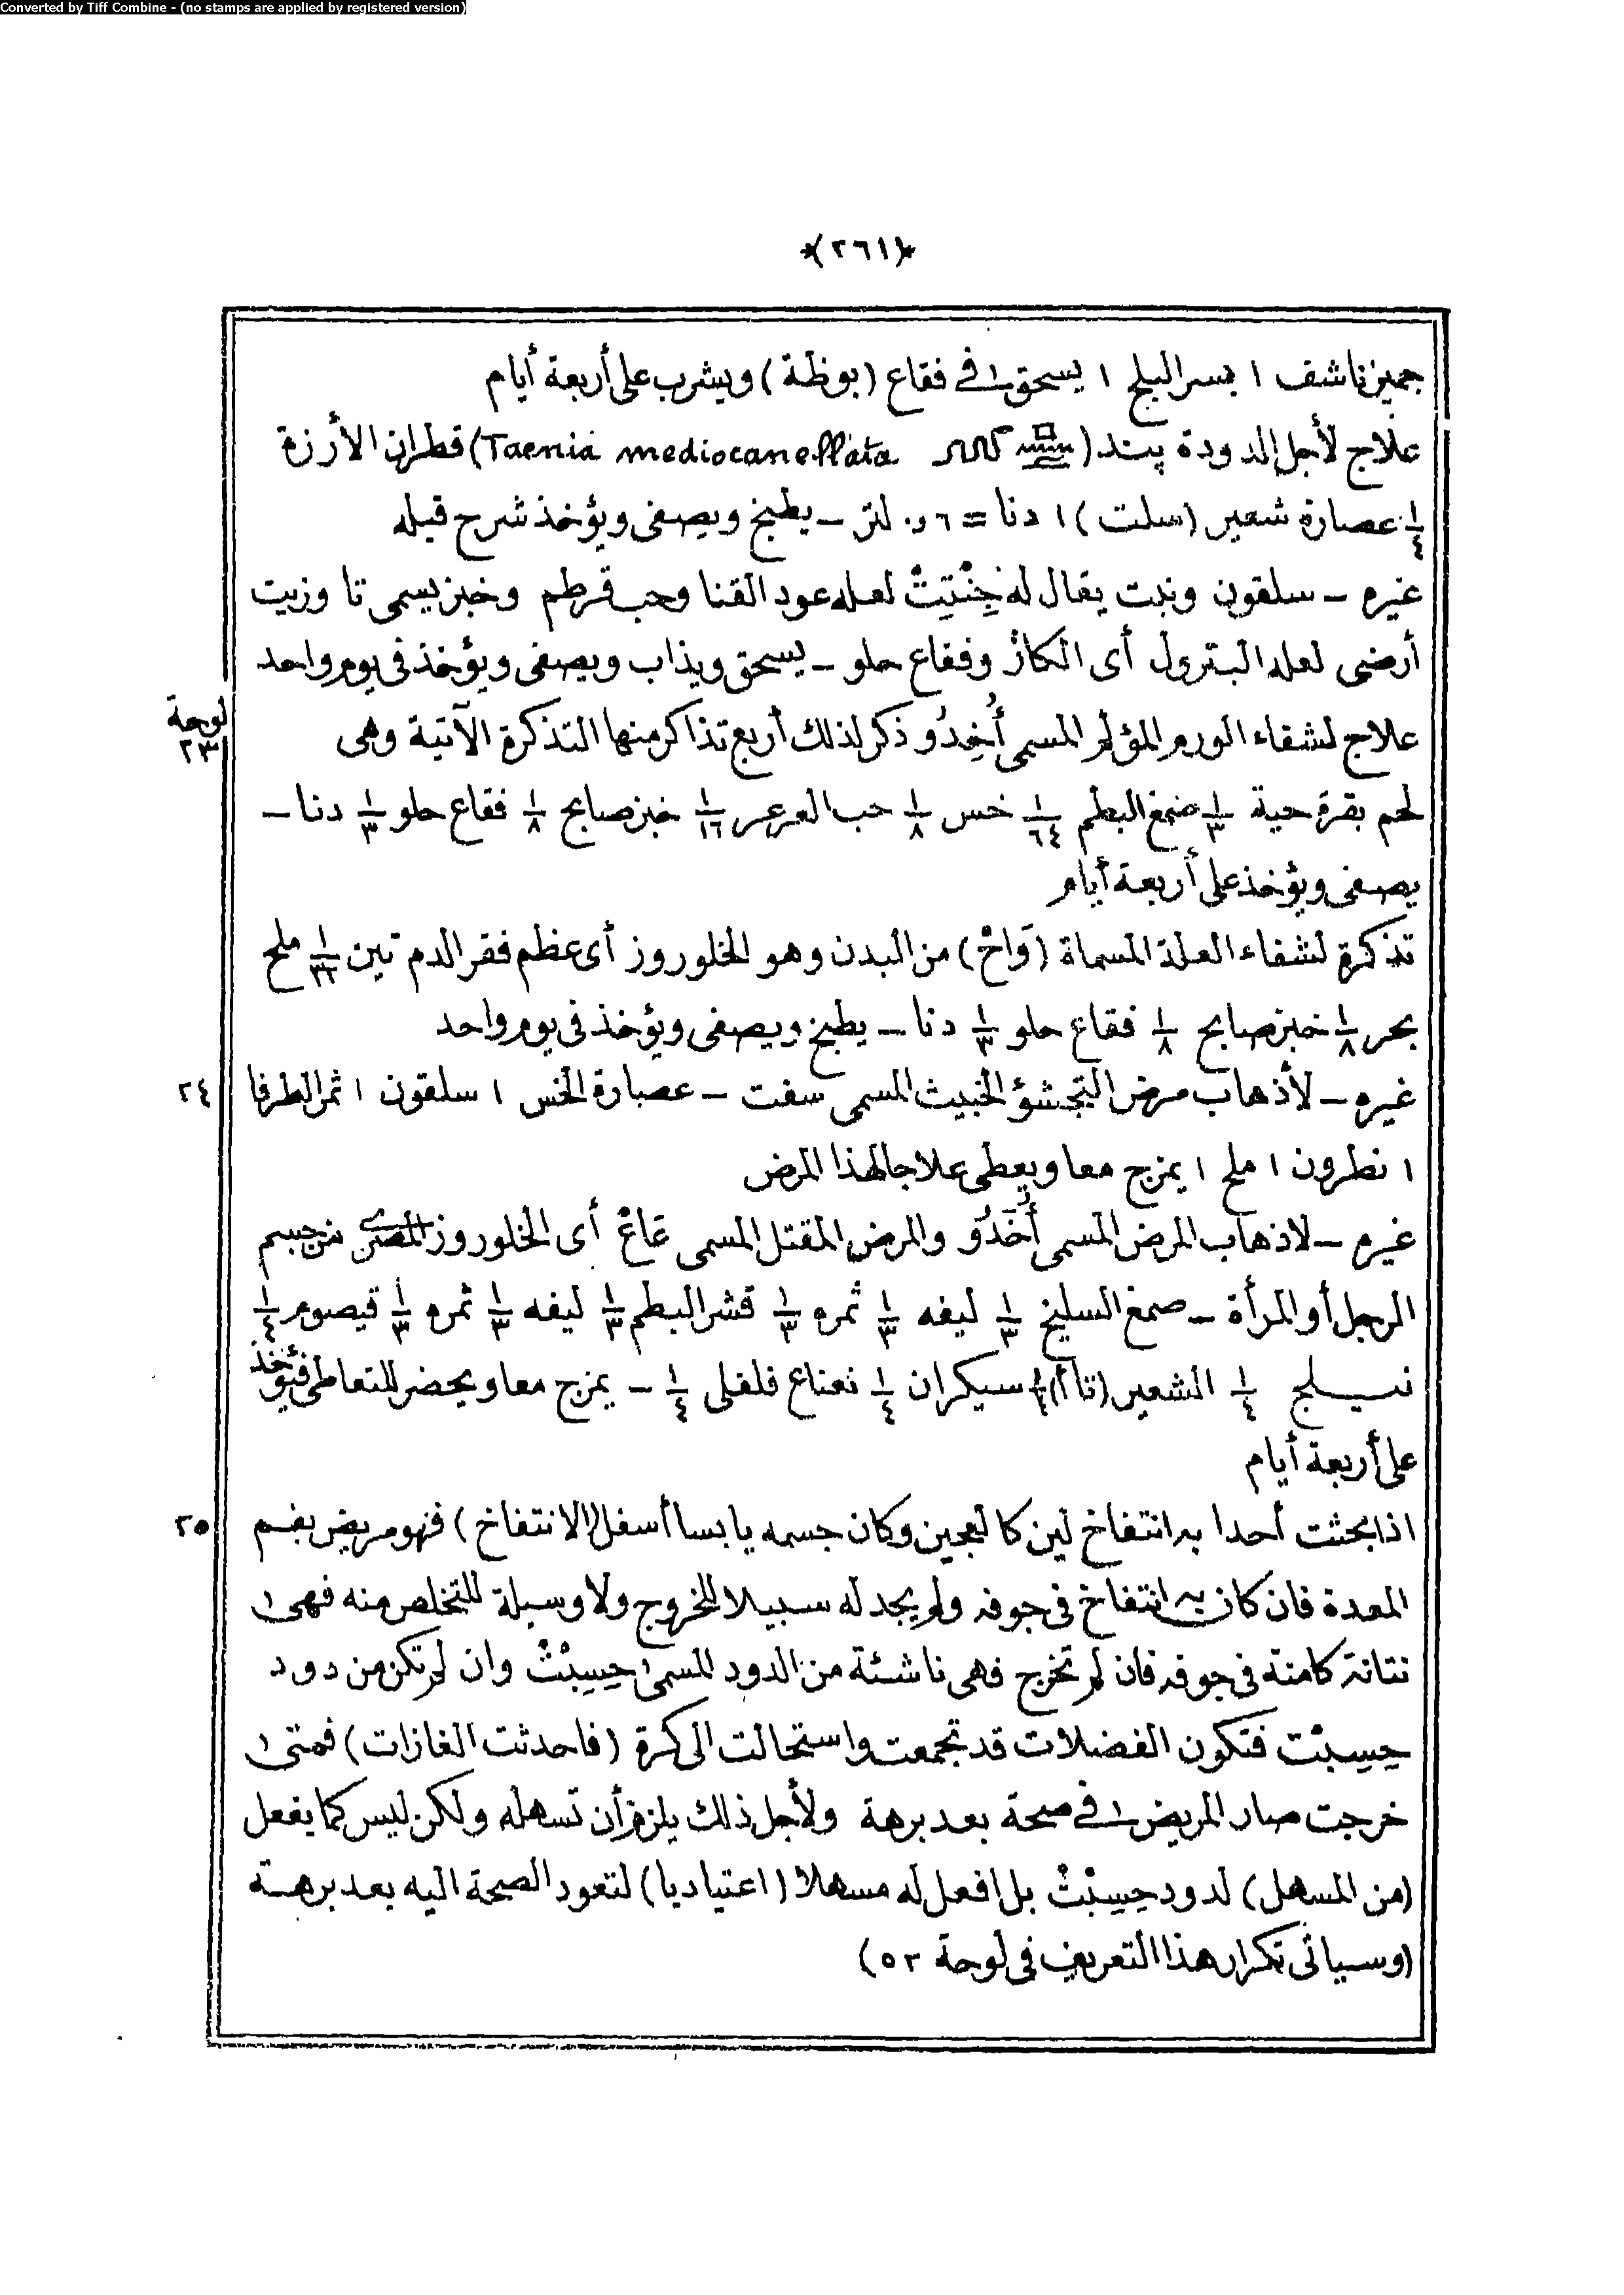 Converted by Tiff Combine - (no stamps are applied by registered version)
*(٢٦١)*
جميز ناشف ١ بسر البلح ١ يسحق في فقاع (بوظة) ويشرب على أربعة أيام
علاج لأجل الدودة پند (Taenia mediocanellata) قطران الأرزة
١/٤ عصارة شعير (سلت) ١ دنا = ٠٫٦ لتر ـ يطبخ ويصفى ويؤخذ شرح قبله
غيره ـ سلقون ونبت يقال له خِنْتِتْ لعله عود القنا وحب قرطم وخبز يسمى تا وزيت
أرضى لعله البترول أى الكاز وفقاع حلو ـ يسحق ويذاب ويصفى ويؤخذ فى يوم واحد
لوحة ٢٣
علاج لشفاء الورم المؤلم المسمى أُخِدُو ذكر لذلك أربع تذاكر منها التذكرة الآتية وهى
لحم بقرة حية ١/٣ صمغ البطم ١/٦٤ خس ١/٨ حب العرعر ١/١٦ خبز صابح ١/٨ فقاع حلو ١/٣ دنا ـ
يصفى ويؤخذ على أربعة أيام
تذكرة لشفاء العلة المسماة (وَاخْ) من البدن وهو الخلوروز أى عظم فقر الدم تين ١/٣٢ ملح
بحر ١/٨ خبز صابح ١/٨ فقاع حلو ١/٣ دنا ـ يطبخ ويصفى ويؤخذ فى يوم واحد
٢٤
غيره ـ لأذهاب مرض التجشؤ الخبيث المسمى سفت ـ عصارة الخس ١ سلقون ١ ثمر الطرفا
١ نطرون ١ ملح ١ يمزج معا ويعطى علاجا لهذا المرض
غيره ـ لاذهاب المرض المسمى أُخَدُو والمرض المقتل المسمى عَاعْ أى الخلوروز المصرى من جسم
الرجل أو المرأة ـ صمغ السليخ ١/٣ ليفه ١/٣ ثمره ١/٣ قشر البطم ١/٣ ليفه ١/٣ ثمره ١/٣ قيصوم ١/٤
نيلج ١/٤ الشعير (تاأ) ١/٤ سيكران ١/٤ نعناع فلفلى ١/٤ ـ يمزج معا ويحضر للتعاطى فيؤخذ
على أربعة أيام
٢٥
اذا بحثت أحدا به انتفاخ لين كالعجين وكان جسمه يابسا أسفل (الانتفاخ) فهو مريض بفم
المعدة فان كان به انتفاخ فى جوفه ولم يجد له سبيلا للخروج ولا وسيلة للتخلص منه فهى
نتانة كامنة فى جوفه فان لم تخرج فهى ناشئة من الدود المسمى حِسِبْتْ وان لم تكن من دود
حِسِبْتْ فتكون الفضلات قد تجمعت واستحالت الى كرة (فاحدثت الغازات) فمتى
خرجت صار المريض في صحة بعد برهة ولأجل ذلك يلزم أن تسهله ولكن ليس كما يفعل
(من المسهل) لدود حِسِبْتْ بل افعل له مسهلا (اعتياديا) لتعود الصحة اليه بعد برهة
(وسيأتى تكرار هذا التعريف فى لوحة ٥٢)